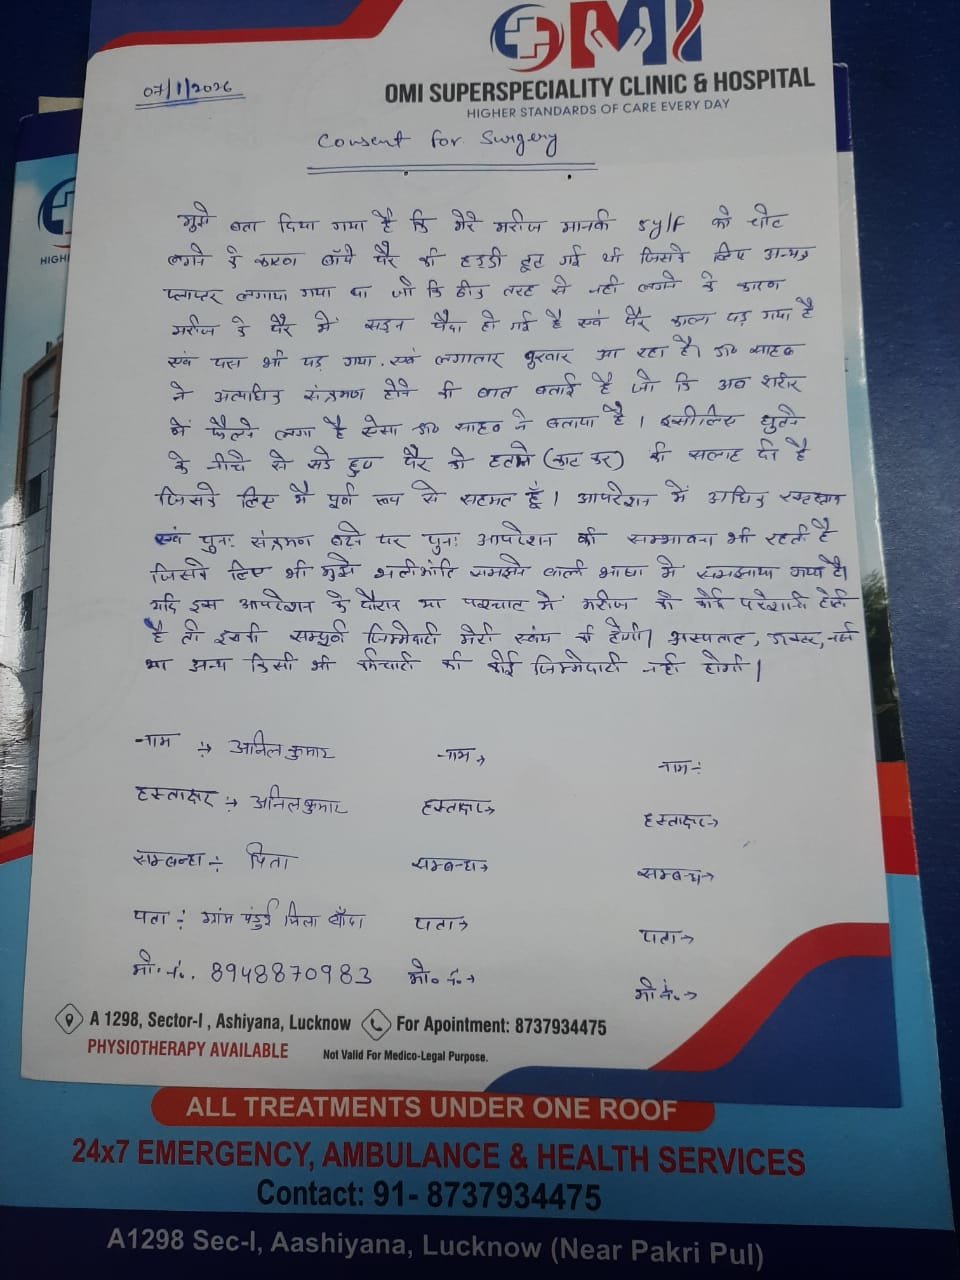 07/1/2026
OMI
OMI SUPERSPECIALITY CLINIC & HOSPITAL
HIGHER STANDARDS OF CARE EVERY DAY
Consent for Surgery
मुझे बता दिया गया है कि मेरे मरीज मानकी 5y/F को चोट
लगने के कारण बाँये पैर की हड्डी टूट गई थी जिसके लिए अन्यत्र
प्लास्टर लगाया गया था जो कि ठीक तरह से नही लगने के कारण
मरीज के पैर में सड़न पैदा हो गई है एवं पैर काला पड़ गया है
एवं पस भी पड़ गया. एवं लगातार बुखार आ रहा है। डा० साहब
ने अत्यधिक संक्रमण होने की बात बताई है जो कि अब शरीर
में फैलने लगा है ऐसा डा० साहब ने बताया है। इसीलिए घुटने
के नीचे से सड़े हुए पैर को हटाने (काट कर) की सलाह दी है
जिसके लिए मै पूर्ण रूप से सहमत हूँ। आपरेशन में अधिक रक्तस्राव
एवं पुनः संक्रमण बढ़ने पर पुनः आपरेशन की सम्भावना भी रहती है
जिसके लिए भी मुझे भलीभांति समझने वाली भाषा में समझाया गया है।
यदि इस आपरेशन के दौरान या पश्चात में मरीज को कोई परेशानी होती
है तो इसकी सम्पूर्ण जिम्मेदारी मेरी स्वंय की होगी। अस्पताल, डाक्टर, नर्स
या अन्य किसी भी कर्मचारी की कोई जिम्मेदारी नही होगी।
नाम :→ अनिल कुमार नाम→ नाम :-
हस्ताक्षर :→ अनिल कुमार हस्ताक्षर→ हस्ताक्षर→
सम्बन्ध :- पिता सम्बन्ध→ सम्बन्ध→
पता :- ग्राम पंडुई जिला बाँदा पता→ पता→
मो. नं. 8948870983 मो० नं.→ मो नं.→
A 1298, Sector-I , Ashiyana, Lucknow For Apointment: 8737934475
PHYSIOTHERAPY AVAILABLE Not Valid For Medico-Legal Purpose.
ALL TREATMENTS UNDER ONE ROOF
24x7 EMERGENCY, AMBULANCE & HEALTH SERVICES
Contact: 91- 8737934475
A1298 Sec-I, Aashiyana, Lucknow (Near Pakri Pul)